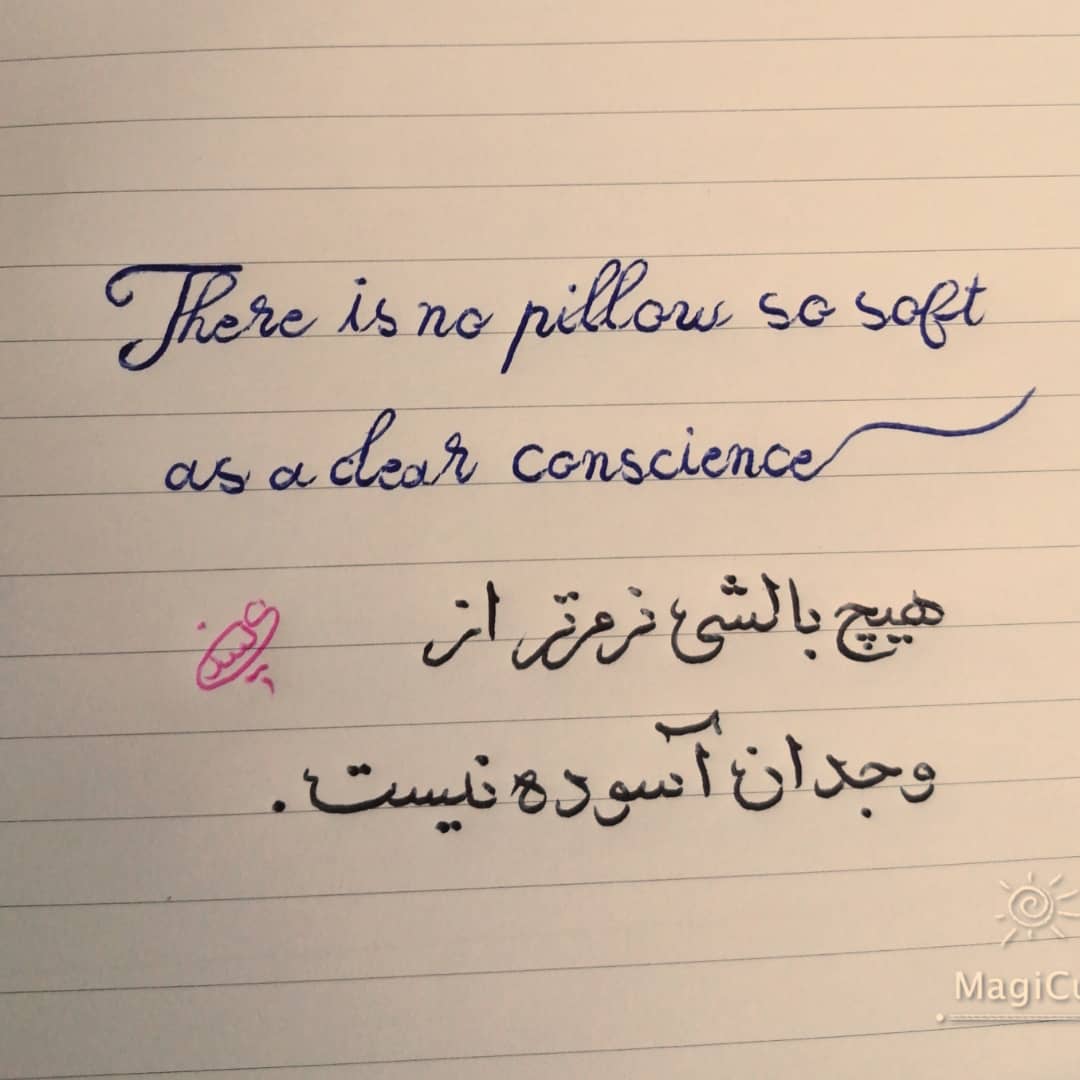 There is no pillow so soft
as a clear conscience
هیچ بالشی نرمتر از
وجدان آسوده نیست.